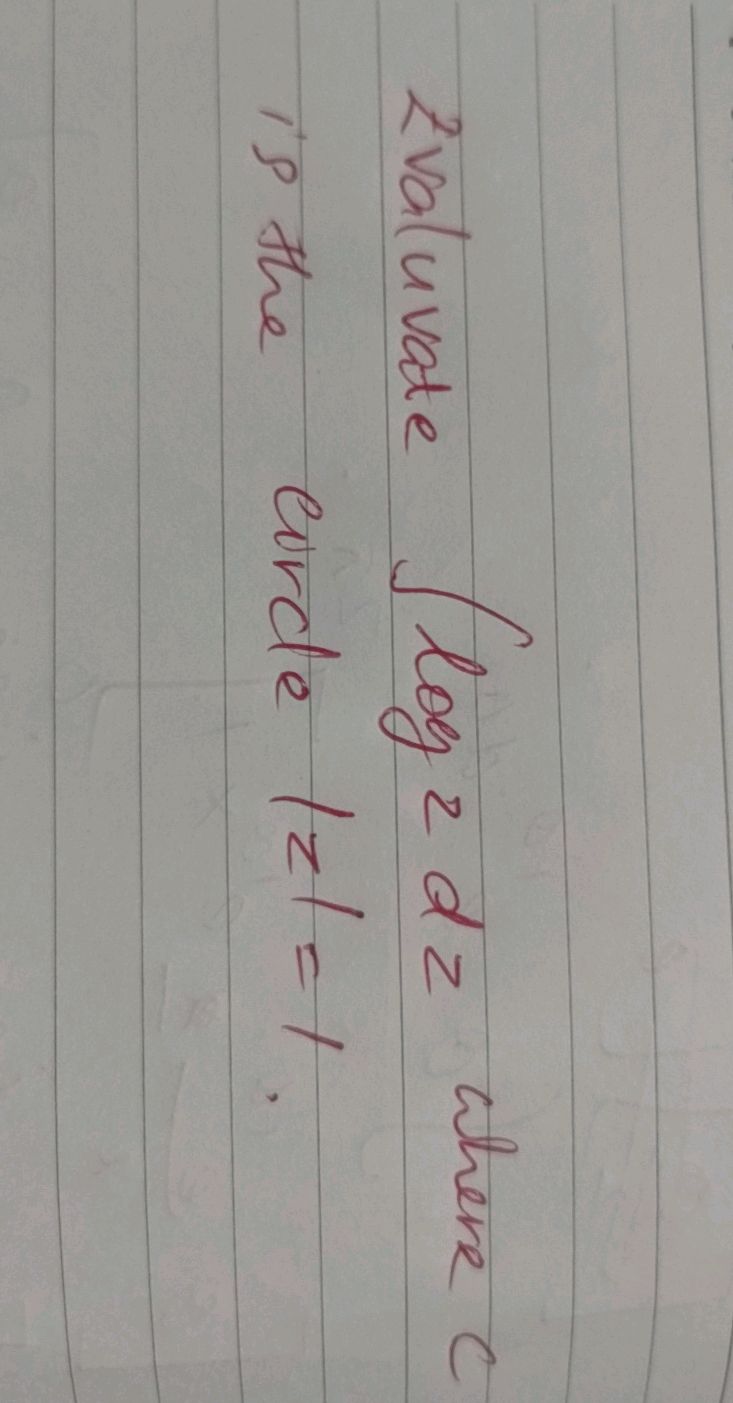 Evaluvate ∫ log z dz where C
is the circle |z| = 1.